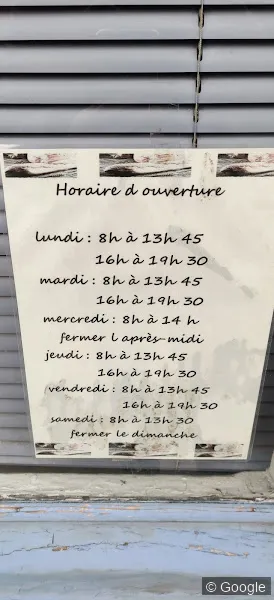 Horaire d ouverture
lundi : 8h à 13h 45
16h à 19h 30
mardi : 8h à 13h 45
16h à 19h 30
mercredi : 8h à 14 h
fermer l après-midi
jeudi : 8h à 13h 45
16h à 19h 30
vendredi : 8h à 13h 45
16h à 19h 30
samedi : 8h à 13h 30
fermer le dimanche
© Google